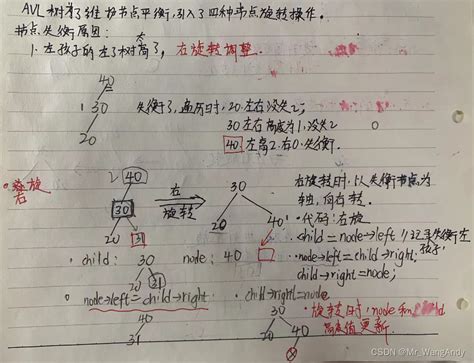 AVL树为了维护节点平衡,引入了四种节点旋转操作。
节点失衡原因:
1. 左孩子的左子树高了,右旋转调整.
太
40
30
20
1
失衡了,遍历时,20左右没失;
30左右高度为1,没失
0
40 左高2,右0,失衡.
右旋
2 40
30
20 31
右
旋转
30
20 40
右旋转时,以失衡节点为
轴,向右转.
·代码:右旋
child = node→left //记录失衡左
孩子,
node→left = child→right;
child→right = node;
·child: 30
20 31
node: 40
node→left = child→right
40
31
child→right = node
30
20 40
·旋转时,node和child
高度值更新.
CSDN @Mr_WangAndy